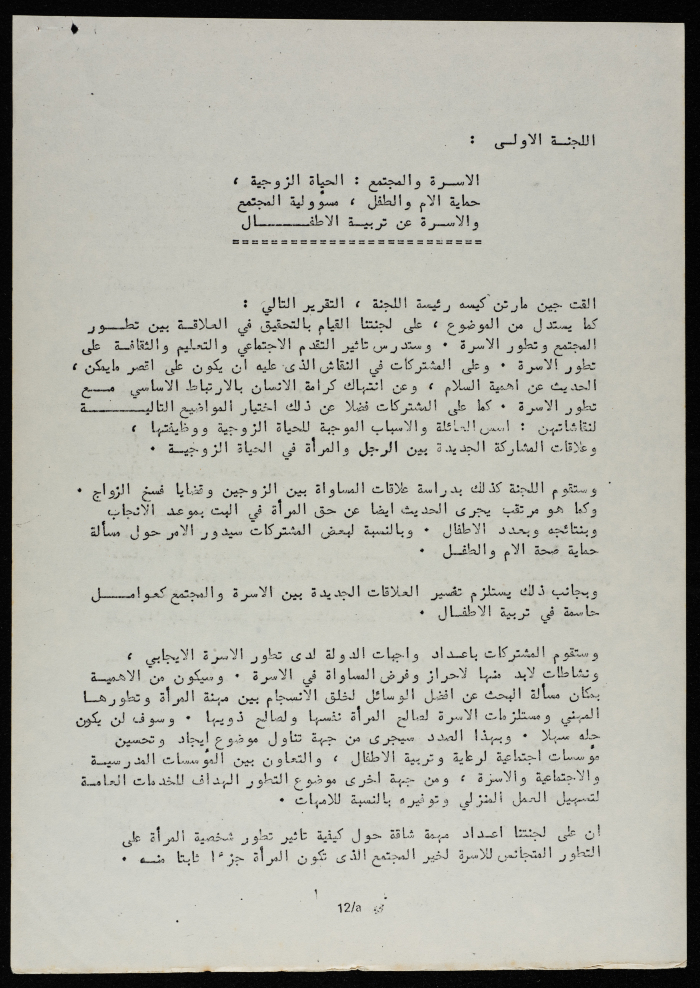 اللجنــة الاولــى :
الاســرة والمجتمع : الحياة الزوجية ،
حماية الام والطفل ، مسؤولية المجتمع
والاســرة عن تربيــة الاطفــــــال
==========================
القت جين مارتن كيسه رئيسة اللجنة ، التقرير التالي :
كما يستدل من الموضوع ، على لجنتنا القيام بالتحقيق في العلاقــة بين تطـــور
المجتمع وتطور الاسرة ٠ وستدرس تاثير التقدم الاجتماعي والتعليم والثقافــة على
تطور الاسرة ٠ وعلى المشتركات في النقاش الذى عليه ان يكون على اقصر مايمكن ،
الحديث عن اهمية السلام ، وعن انتهاك كرامة الانسان بالارتباط الاساسي مــــع
تطور الاسرة ٠ كما على المشتركات فضلا عن ذلك اختيار المواضيع التاليـــــــة
لنقاشاتهن : اسس العائلة والاسباب الموجبة للحياة الزوجية ووظيفتها ،
وعلاقات المشاركة الجديدة بين الرجل والمرأة في الحياة الزوجيــة ٠
وستقوم اللجنة كذلك بدراسة علاقات المساواة بين الزوجين وقضايا فسخ الزواج ٠
وكما هو مرتقب يجرى الحديث ايضا عن حق المرأة في البت بموعد الانجاب
وبنتائجه وبعدد الاطفال ٠ وبالنسبة لبعض المشتركات سيدور الامر حول مسألة
حماية صحة الام والطفــل ٠
وبجانب ذلك يستلزم تفسير العلاقات الجديدة بين الاسرة والمجتمع كعوامـــــل
حاسمة في تربية الاطفــال ٠
وستقوم المشتركات باعــداد واجبات الدولة لدى تطور الاسرة الايجابي ،
ونشاطات لابد منها لاحراز وفرض المساواة في الاسرة ٠ وسيكون من الاهميــة
بمكان مسألة البحث عن افضل الوسائل لخلق الانسجام بين مهنة المرأة وتطورهــا
المهني ومستلزمات الاسرة لصالح المرأة نفسها ولصالح ذويهـا ٠ وسوف لن يكون
حله سهلا ٠ وبهذا الصدد سيجرى من جهة تناول موضوع إيجاد وتحسين
مؤسسات اجتماعية لرعاية وتربية الاطفال ، والتعاون بين المؤسسات المدرسيــة
والاجتماعية والاسرة ، ومن جهة اخرى موضوع التطور الهداف للخدمات العامــة
لتسهيل العمل المنزلي وتوفيره بالنسبة للامهات ٠
ان على لجنتنا اعـداد مهمة شاقة حول كيفية تاثير تطور شخصية المرأة على
التطور المتجانس للاسرة لخير المجتمع الذى تكون المرأة جزءًا ثابتا منـه ٠
12/a